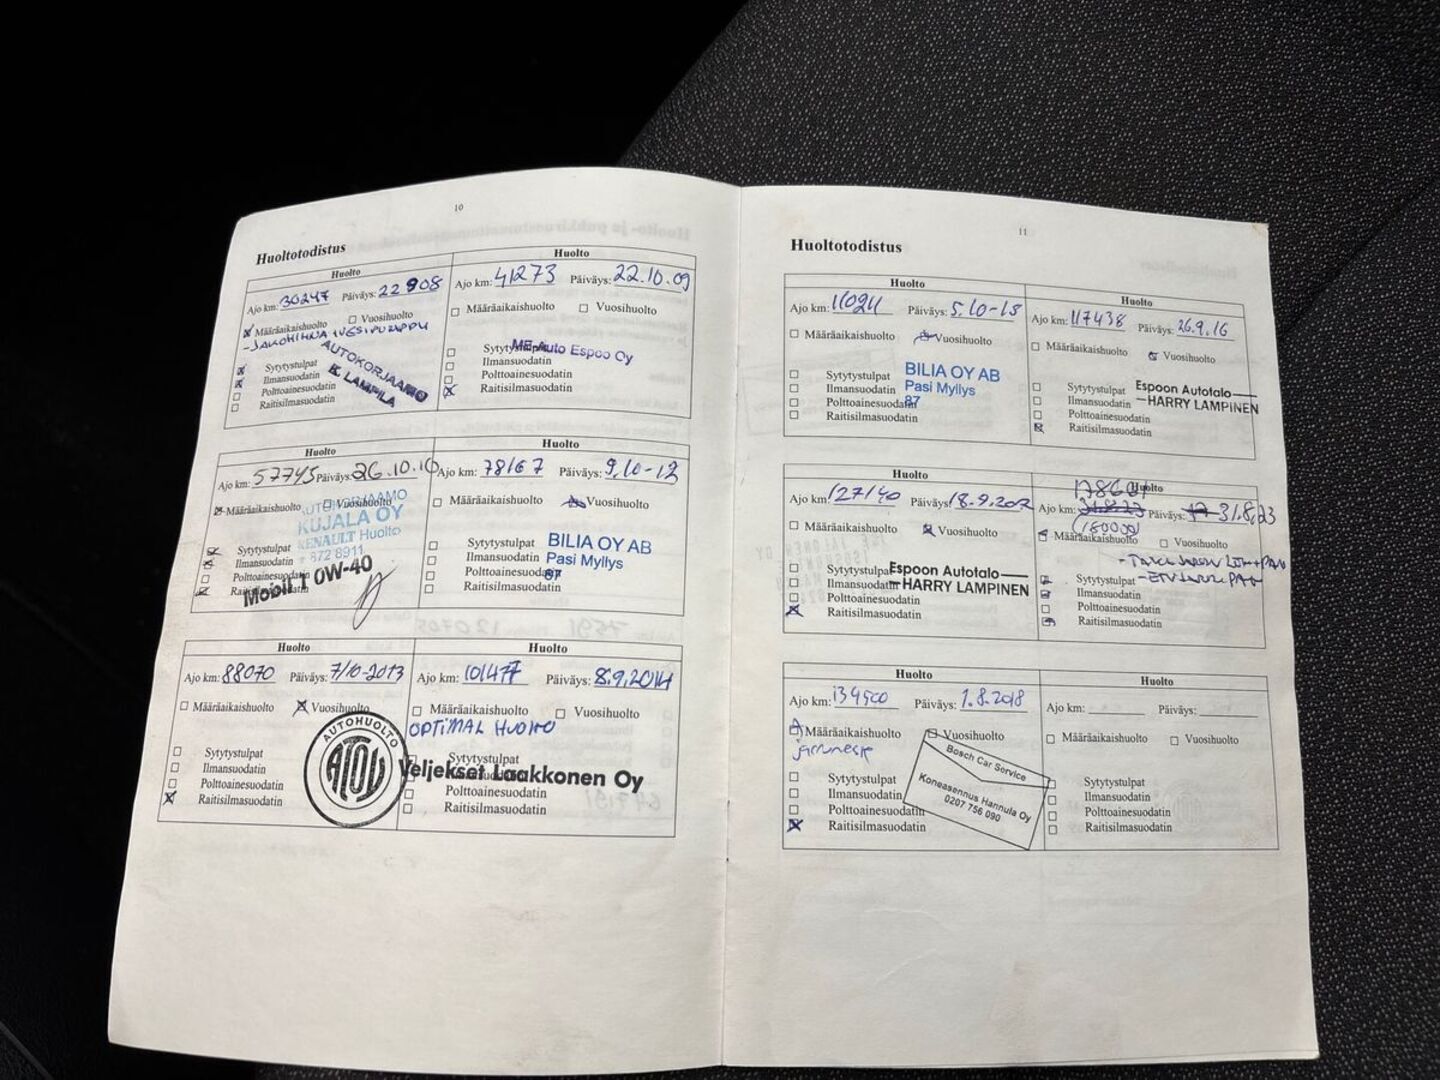 10
Huoltotodistus
Huolto
Ajo km: 30247 Päiväys: 22 9 08
Määräaikaishuolto Vuosihuolto
Sytytystulpat
Ilmansuodatin
Polttoainesuodatin
Raitisilmasuodatin
AUTOKORJAAMO
K. LAMPILA
Huolto
Ajo km: 41273 Päiväys: 22.10.09
Määräaikaishuolto Vuosihuolto
ME-Auto Espoo Oy
Sytytystulpat
Ilmansuodatin
Polttoainesuodatin
Raitisilmasuodatin
Huolto
Ajo km: 57745 Päiväys: 26.10.10
Määräaikaishuolto Vuosihuolto
AUTOKORJAAMO
KUJALA OY
RENAULT Huolto
872 8911
Sytytystulpat
Ilmansuodatin
Polttoainesuodatin
Raitisilmasuodatin
Mobil 1 0W-40
Huolto
Ajo km: 78167 Päiväys: 9.10-12
Määräaikaishuolto Vuosihuolto
Sytytystulpat
Ilmansuodatin
Polttoainesuodatin
Raitisilmasuodatin
BILIA OY AB
Pasi Myllys
87
Huolto
Ajo km: 88070 Päiväys: 7/10-2013
Määräaikaishuolto Vuosihuolto
Sytytystulpat
Ilmansuodatin
Polttoainesuodatin
Raitisilmasuodatin
AUTOHUOLTO
Huolto
Ajo km: 101477 Päiväys: 8.9.2014
Määräaikaishuolto Vuosihuolto
OPTIMAL HUOLTO
Sytytystulpat
Veljekset Laakkonen Oy
Polttoainesuodatin
Raitisilmasuodatin
11
Huoltotodistus
Huolto
Ajo km: 110211 Päiväys: 5.10-15
Määräaikaishuolto Vuosihuolto
Sytytystulpat
Ilmansuodatin
Polttoainesuodatin
Raitisilmasuodatin
BILIA OY AB
Pasi Myllys
87
Huolto
Ajo km: 117438 Päiväys: 26.9.16
Määräaikaishuolto Vuosihuolto
Sytytystulpat
Ilmansuodatin
Polttoainesuodatin
Raitisilmasuodatin
Espoon Autotalo
HARRY LAMPINEN
Huolto
Ajo km: 127140 Päiväys: 18.9.2017
Määräaikaishuolto Vuosihuolto
Sytytystulpat
Ilmansuodatin
Polttoainesuodatin
Raitisilmasuodatin
Espoon Autotalo
HARRY LAMPINEN
Huolto
Ajo km: Päiväys: 31.8.23
(180000)
Määräaikaishuolto Vuosihuolto
Sytytystulpat
Ilmansuodatin
Polttoainesuodatin
Raitisilmasuodatin
Huolto
Ajo km: 134500 Päiväys: 1.8.2018
Määräaikaishuolto Vuosihuolto
Sytytystulpat
Ilmansuodatin
Polttoainesuodatin
Raitisilmasuodatin
Bosch Car Service
Koneasennus Hannula Oy
0207 756 090
Huolto
Ajo km: Päiväys:
Määräaikaishuolto Vuosihuolto
Sytytystulpat
Ilmansuodatin
Polttoainesuodatin
Raitisilmasuodatin